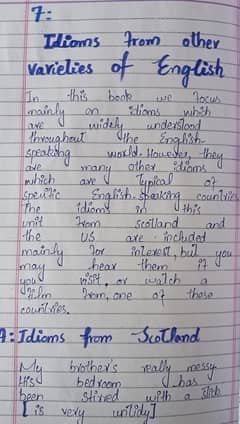 7:
Idioms from other
varieties of English
In this book we focus
mainly on idioms which
are widely understood
throughout the English-
speaking world. However, they
are many other idioms
which are typical of
specific English-speaking countries.
The idioms in this
unit from scotland and
the US are included
mainly for interest, but you
may hear them if
you visit, or watch a
film from, one of these
countries.
A: Idioms from Scotland
My brother's really messy
His bedroom has
been stired with a stick
[is very untidy]